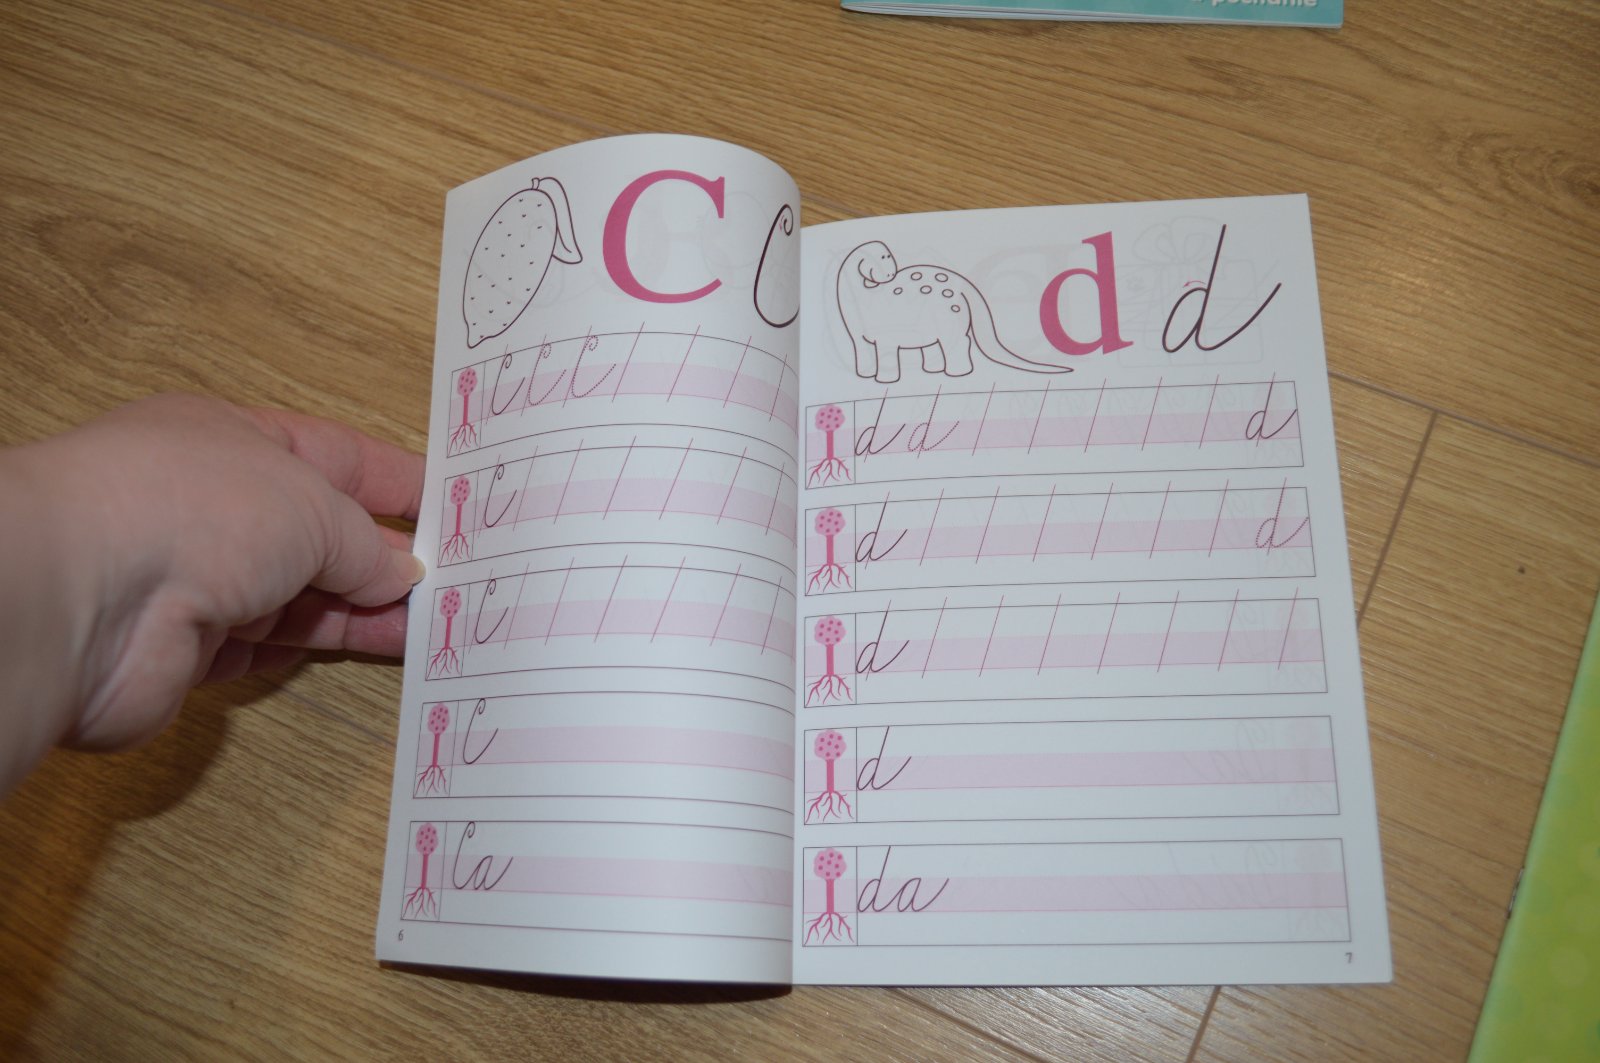 C C
C C C
C
C
C
Ca
6
d d
d d d
d d
d
d
da
7